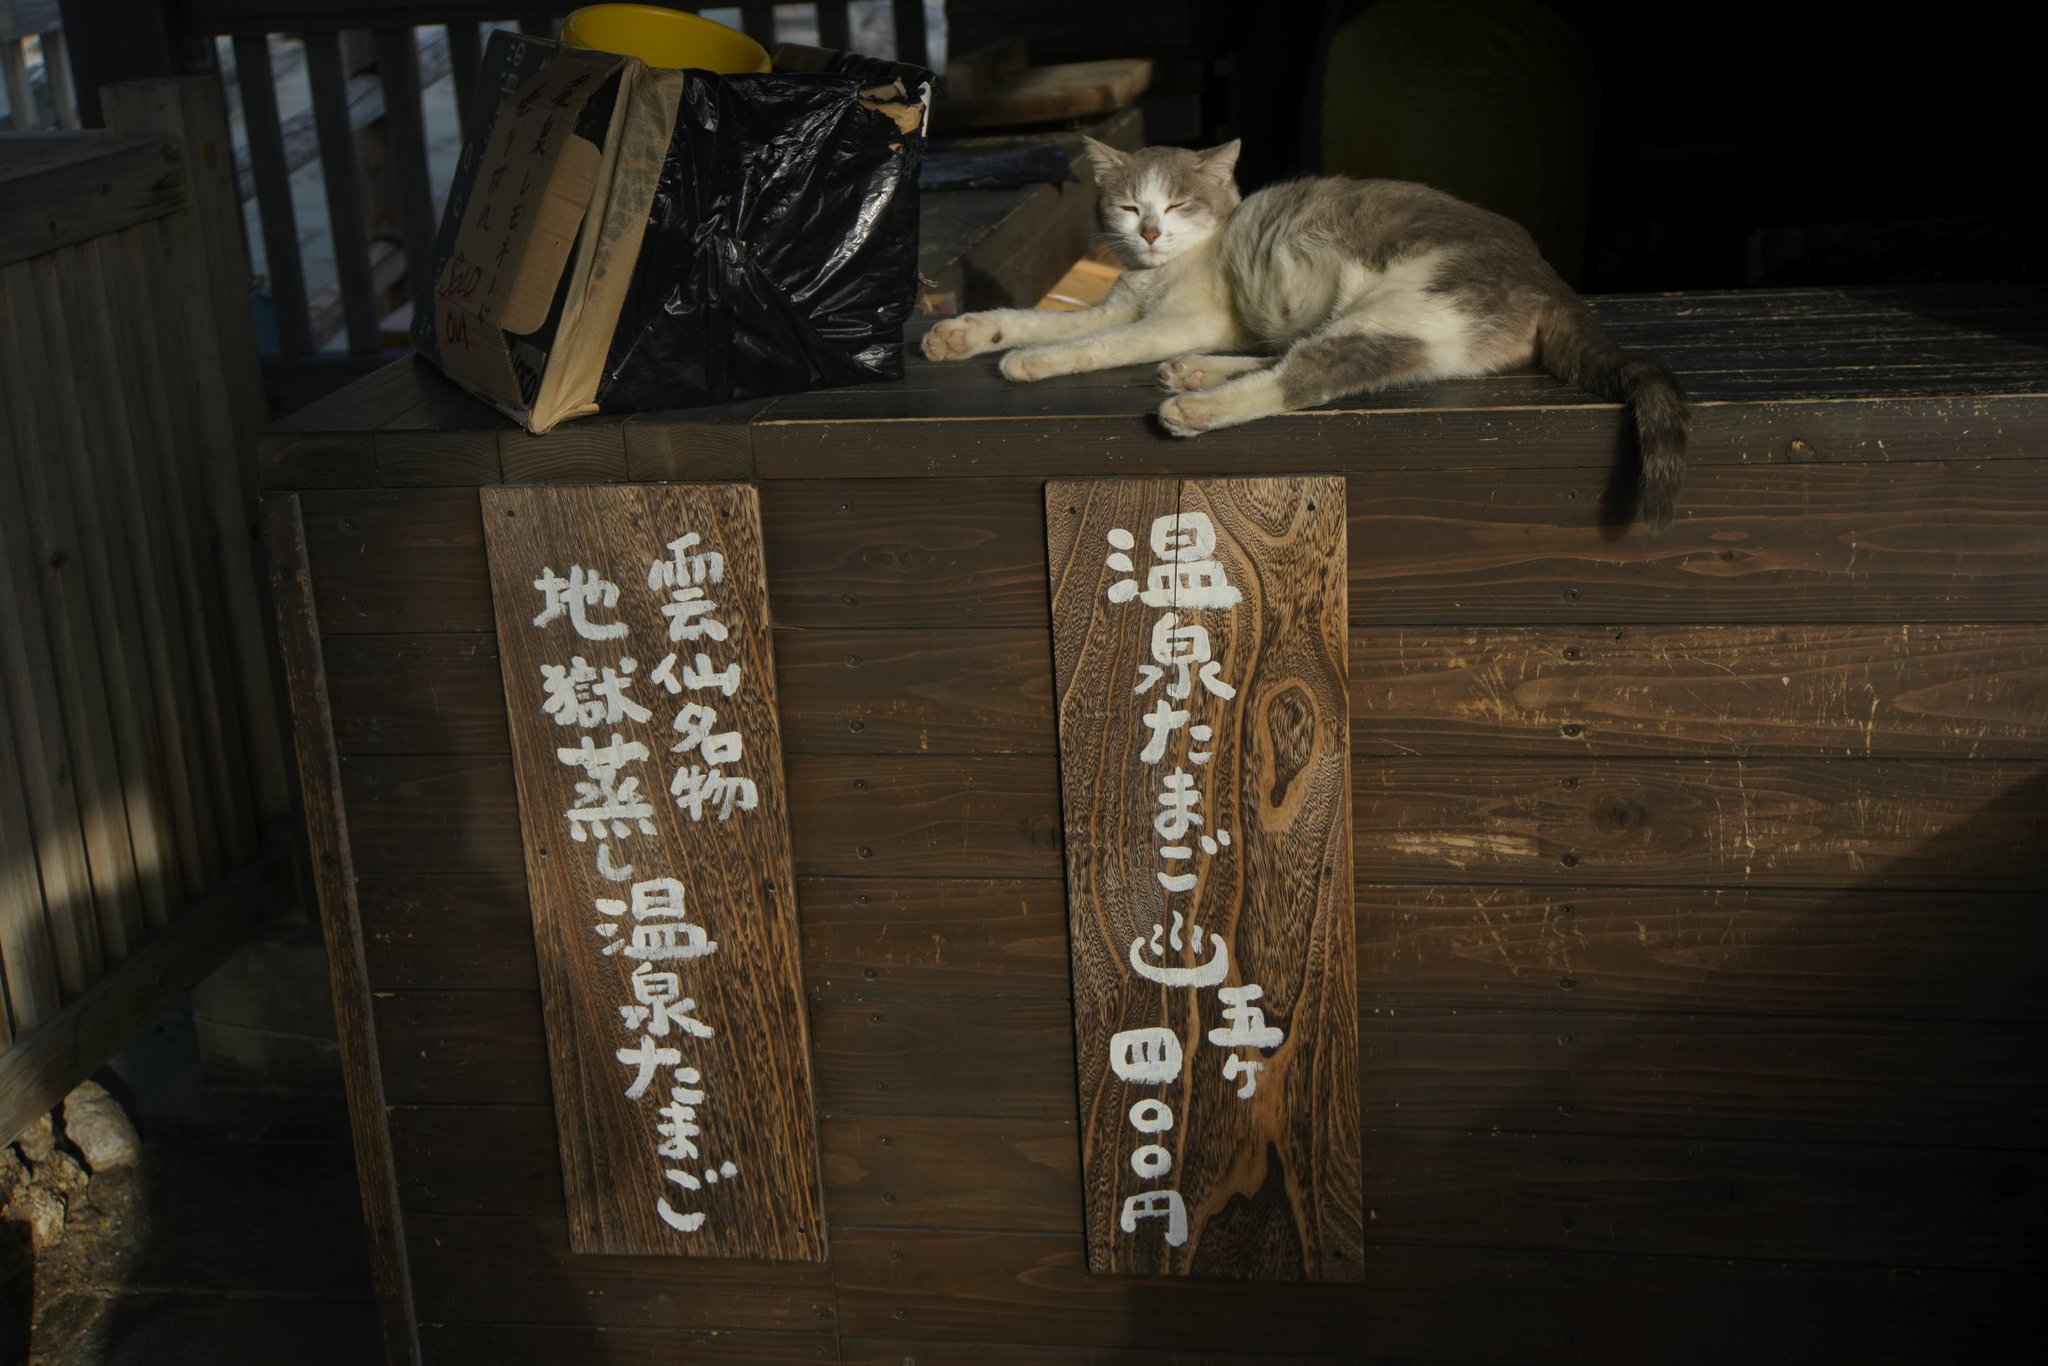 雲仙名物
地獄蒸し温泉たまご
温泉たまご♨
五ヶ
四〇〇円
売り切れ
SOLD
out